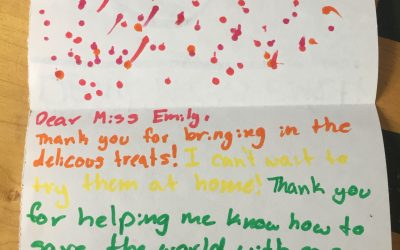 Dear Miss Emily,
Thank you for bringing in the
delicous treats! I can't wait to
try them at home! Thank you
for helping me know how to
save the world with